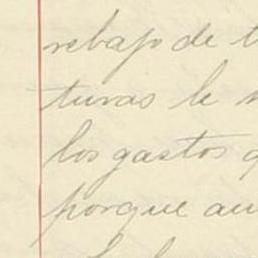 rebajo de t
turas le
los gastos
porque au